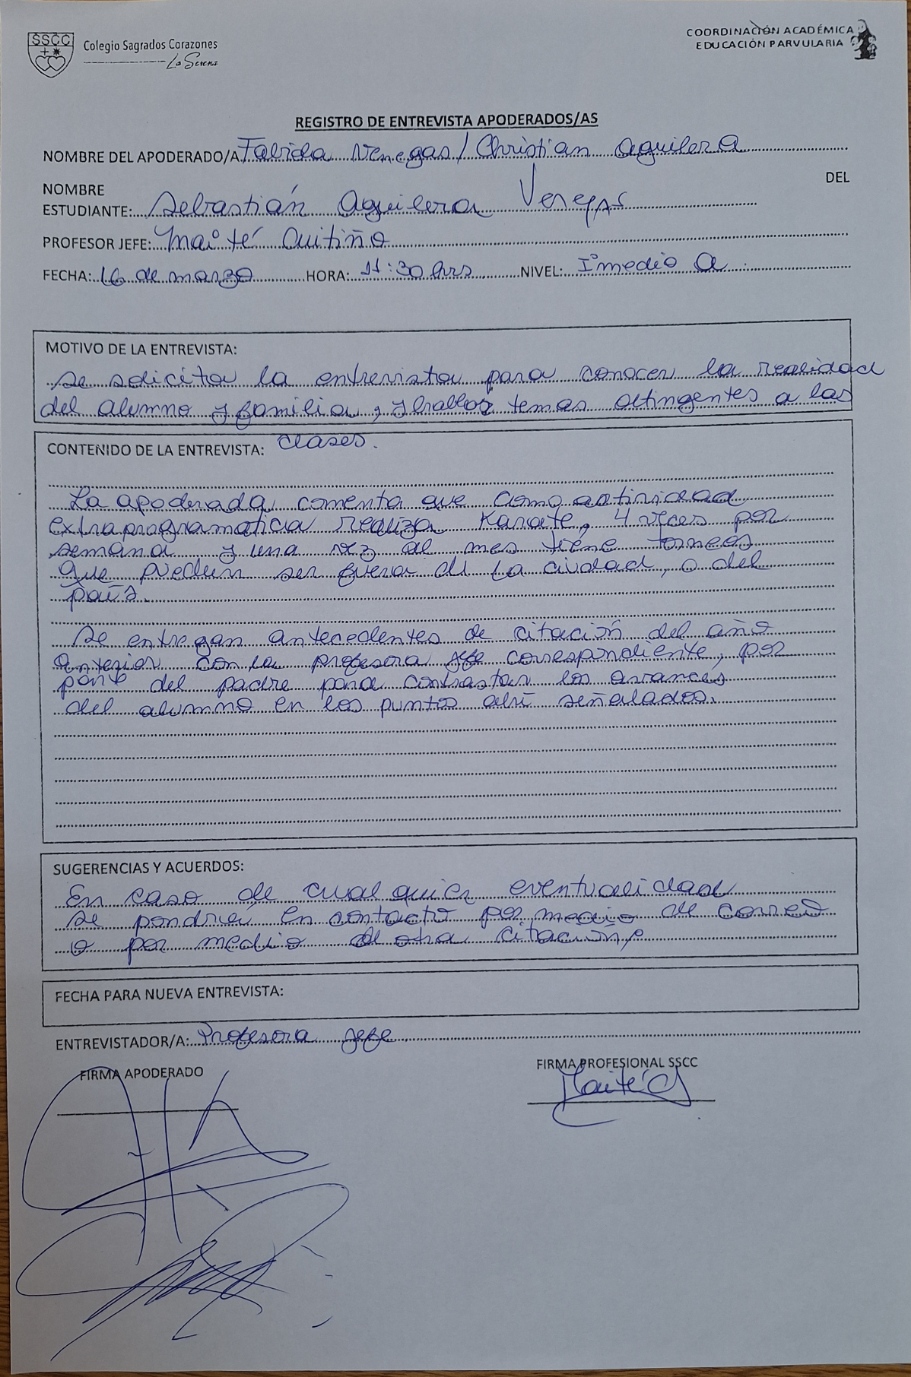 SSCC
Colegio Sagrados Corazones
La Serena
COORDINACIÓN ACADÉMICA
EDUCACIÓN PARVULARIA
REGISTRO DE ENTREVISTA APODERADOS/AS
NOMBRE DEL APODERADO/A Fabiola Venegas / Christian Aguilera
NOMBRE DEL
ESTUDIANTE: Sebastián Aguilera Venegas
PROFESOR JEFE: Maité
FECHA: 16 de marzo HORA: 11:30 hrs NIVEL: Iº medio A
MOTIVO DE LA ENTREVISTA:
Se solicita la entrevista para conocer la realidad
del alumno y familia, y temas atingentes a las
clases.
CONTENIDO DE LA ENTREVISTA:
La apoderada comenta que como actividad
extraprogramatica realiza Karate, 4 veces por
semana y una vez al mes tiene torneos
que pueden ser fuera de la ciudad, o del
país.
Se entregan antecedentes de citación del año
anterior con la profesora jefe correspondiente, por
parte del padre para contrastar los avances
del alumno en los puntos allí señalados.
SUGERENCIAS Y ACUERDOS:
En caso de cualquier eventualidad
se pondrá en contacto por medio de correo
o por medio de otra citación
FECHA PARA NUEVA ENTREVISTA:
ENTREVISTADOR/A: Profesora jefe
FIRMA APODERADO FIRMA PROFESIONAL SSCC